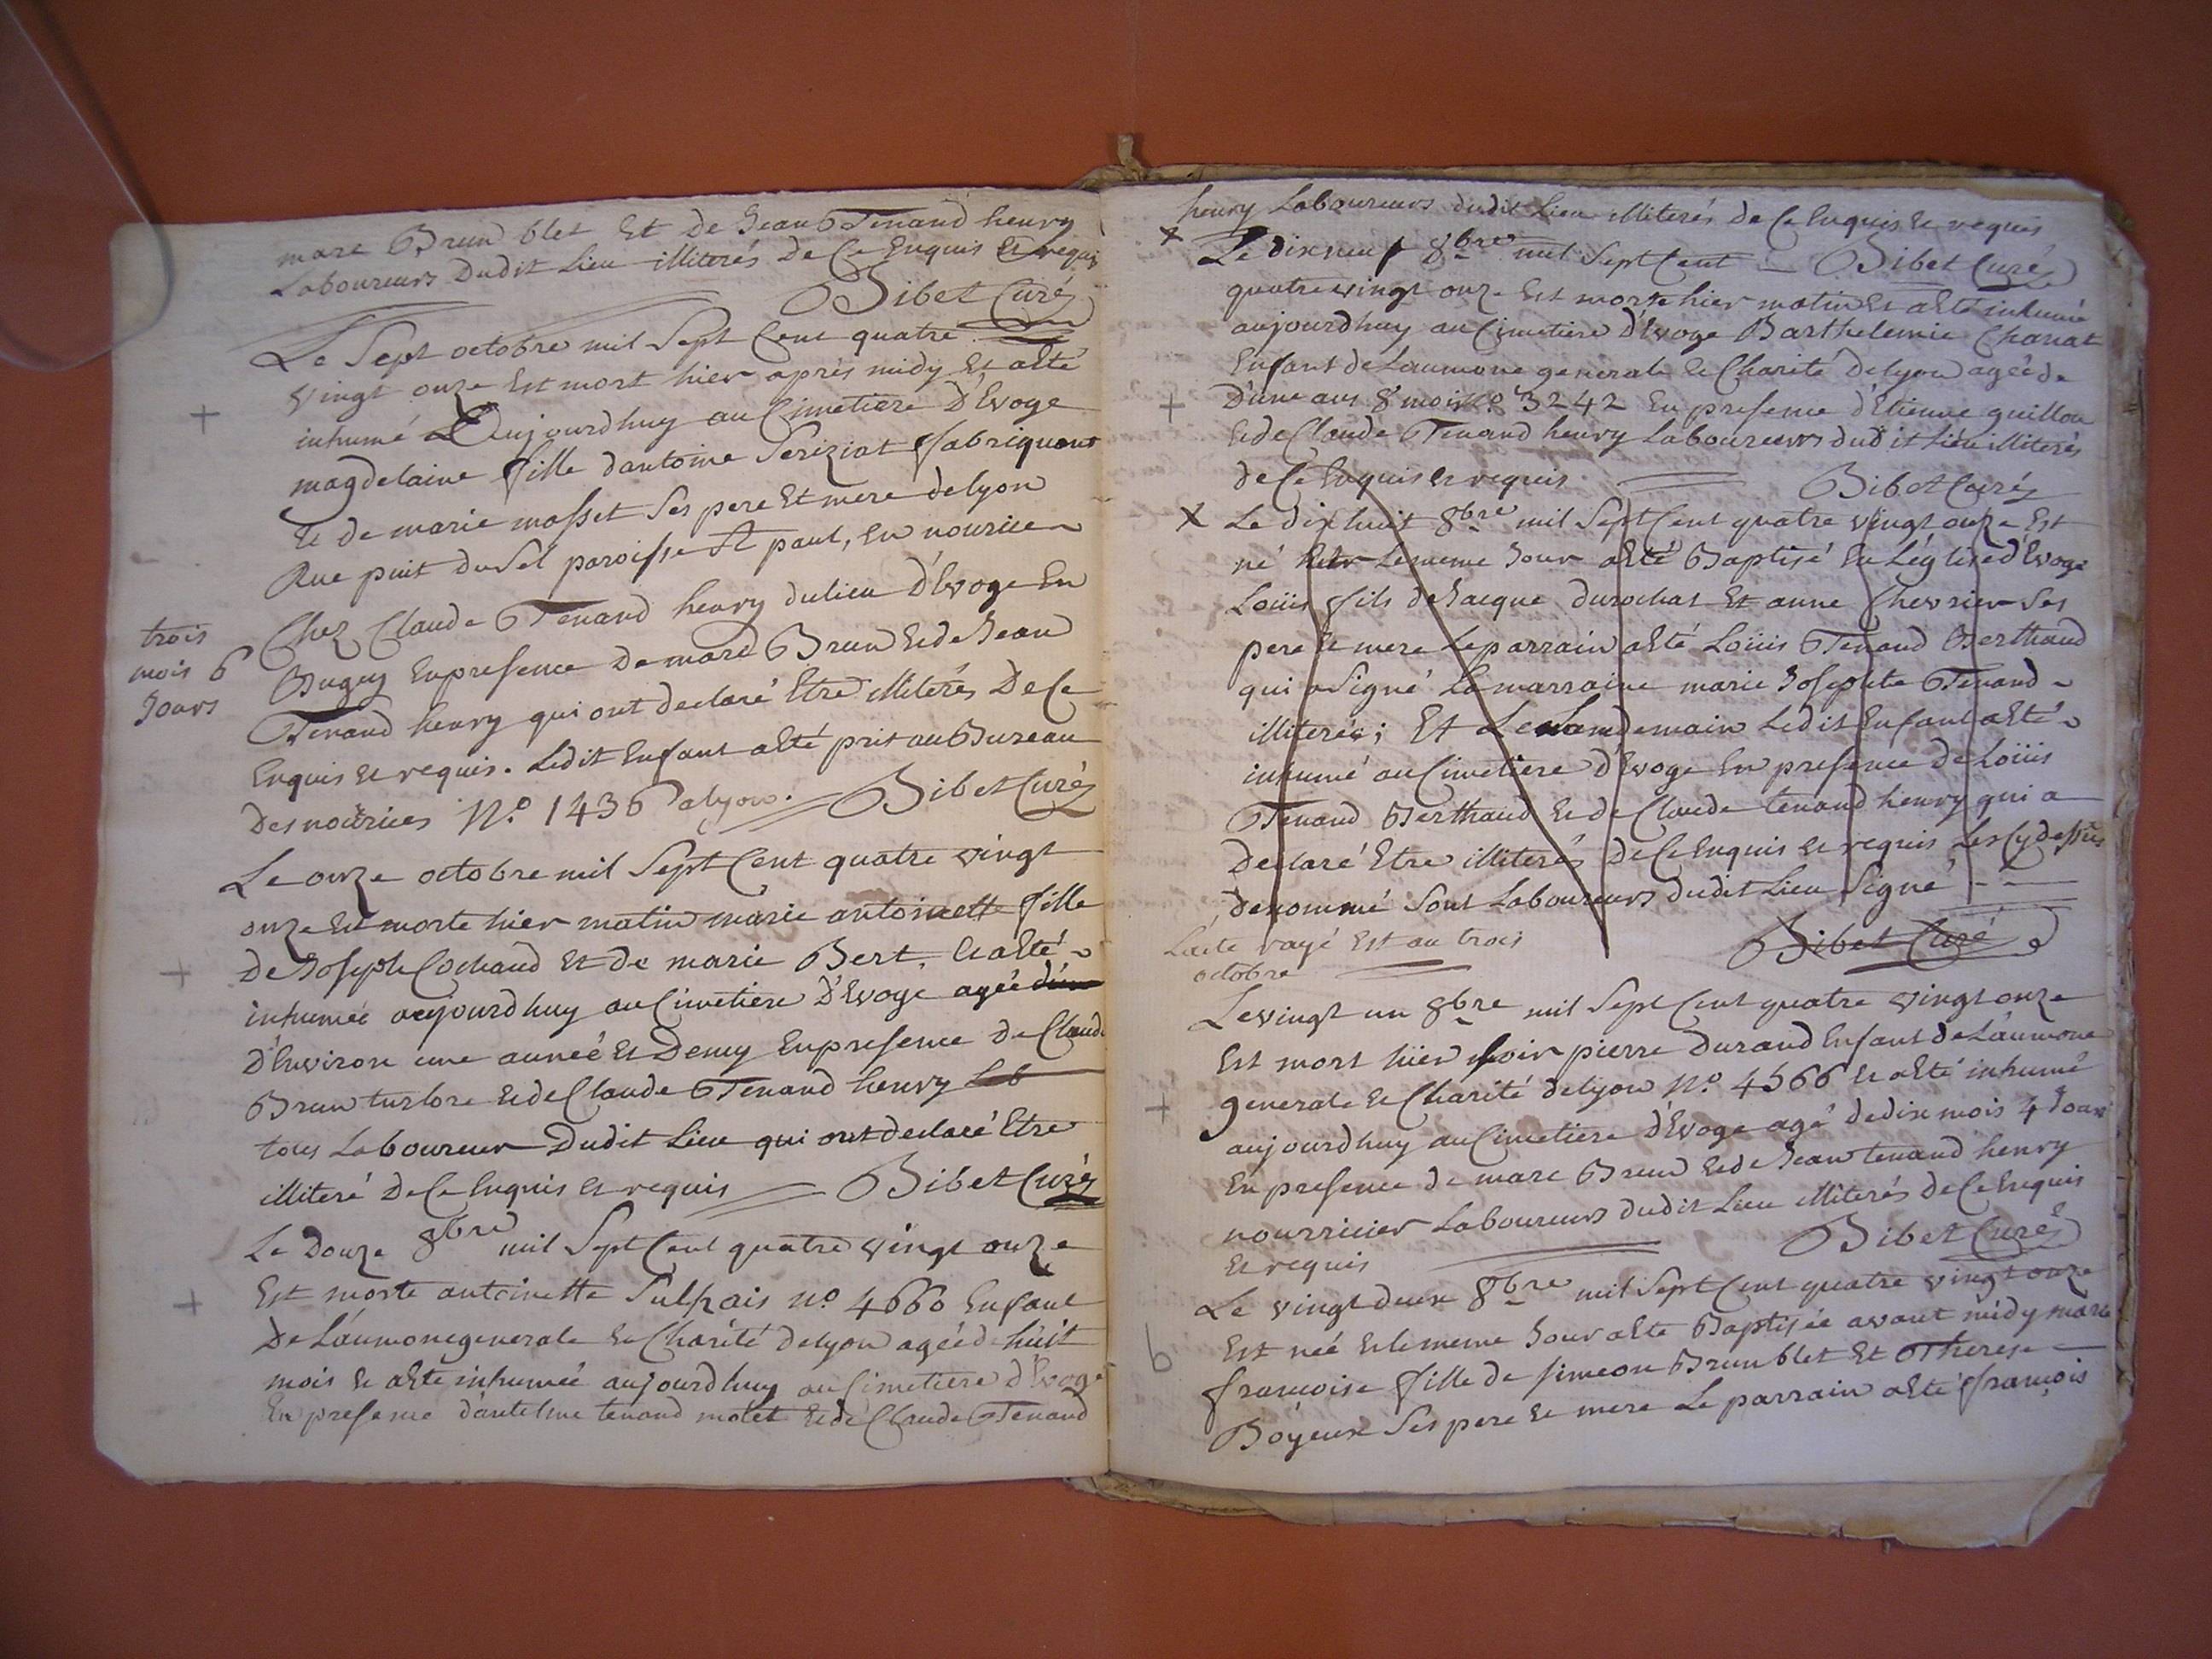 marc Brun blet Et de Jean Tenand henry
Laboureurs Dudit Lieu illiterés De Ce Enquis Et requis
Bibet Curé
Le Sept octobre mil Sept Cent quatre
vingt onze Est mort hier après midy Et aEté
inhumé Aujourdhuy au Cimetiere D'Evoge
magdelaine fille dantoine Periziat fabriquant
Et de marie mosset Ses pere Et mere delyon
Rue puit Du Sel paroisse St paul, En nourice
trois
mois 6
Jours
Chez Claude Tenand henry dulieu D'Evoge En
Bugey Enpresence De marc Brun Et de Jean
Tenand henry qui ont declaré Etre illiterés De Ce
Enquis Et requis. Ledit Enfant aEté pris au Bureau
Des nourices N.o 1436 alyon. Bibet Curé
Le onze octobre mil Sept Cent quatre vingt
onze Est morte hier matin marie antoinette fille
De Joseph Cochaud Et de marie Bert, Et aEté
inhumée aujourdhuy au Cimetiere D'Evoge ageé d'un
D'Environ une anneé Et Demy Enpresence De Claude
Brun turlore Et de Claude Tenand henry Lab
tous Laboureur Dudit Lieu qui ont declaré Etre
illiteré De Ce Enquis Et requis Bibet Curé
Le Douze 8bre mil Sept Cent quatre vingt onze
Est morte antoinette Sulpais N.o 4660 Enfant
De Laumone generale Et Charité delyon ageé de huit
mois Et aEté inhumeé aujourdhuy au Cimetiere d'Evoge
En presence d'antelme tenand molet Et de Claude Tenand
henry Laboureurs dudit Lieu illiterés de Ce Enquis Et requis
x Le dixneuf 8bre mil Sept Cent Bibet Curé
quatre vingt onze Est morte hier matin Et aEté inhumé
aujourdhuy au Cimetiere D'Evoge Barthelemie Chanat
Enfant de Laumone generale Et Charité delyon ageé de
D'une ans 8 mois N.o 3242 En presence d'Etienne guillon
Et de Claude Tenand henry Laboureurs dudit Lieu illiterés
de Ce Enquis Et requis. Bibet Curé
x Le dix huit 8bre mil Sept Cent quatre vingt onze Est
né hier Le meme Jour aEté Baptisé En L'église d'Evoge
Loüis fils de Jacque durochat Et anne Chevrier Ses
pere Et mere Le parrain aEté Loüis Tenand Berthaud
qui a Signé La marraine marie Josephte Tenand
illiterés; Et Le Lendemain Ledit Enfant aEté
inhumé au Cimetiere d'Evoge En presence de Loüis
Tenand Berthaud Et de Claude tenand henry qui a
Declaré Etre illiterés De Ce Enquis Et requis Les Cy dessus
denommé Sont Laboureurs dudit Lieu Signé
L'acte rayé Est au trois
octobre
Bibet Curé
Le vingt un 8bre mil Sept Cent quatre vingt onze
Est mort hier soir pierre Durand Enfant de Laumone
generale Et Charité delyon N.o 4566 Et aEté inhumé
aujourdhuy au Cimetiere D'Evoge agé de dix mois 4 Jours
En presence de marc Brun Et de Jean tenand henry
nourricier Laboureurs dudit Lieu illiterés de Ce Enquis
Et requis Bibet Curé
Le vingt deux 8bre mil Sept Cent quatre vingt onze
6 Est neé Et le meme Jour aEté Baptiseé avant midy marie
francoise fille de simeon Brun blet Et Therese
Boyeux Ses pere Et mere Le parrain aEté françois